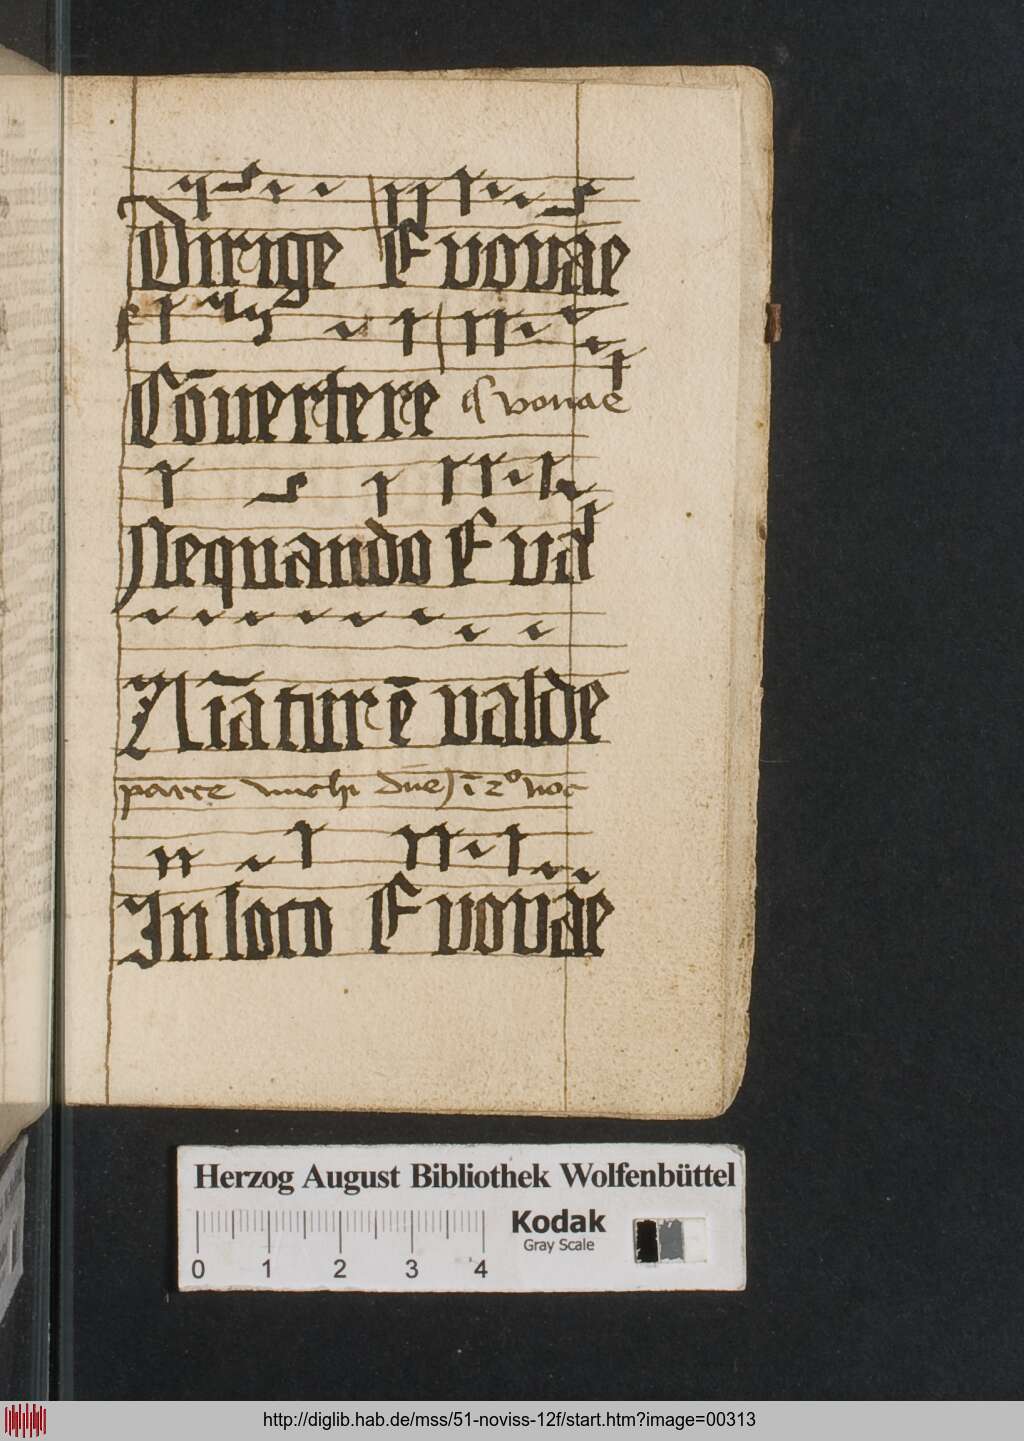 Dirige Evovāe
Cōvertere Evovae
Nequando Eva
Nīatur ē valde
parce michi dn̄e) ī 2º noc
In loco Evovāe
Herzog August Bibliothek Wolfenbüttel
Kodak
Gray Scale
0 1 2 3 4
http://diglib.hab.de/mss/51-noviss-12f/start.htm?image=00313